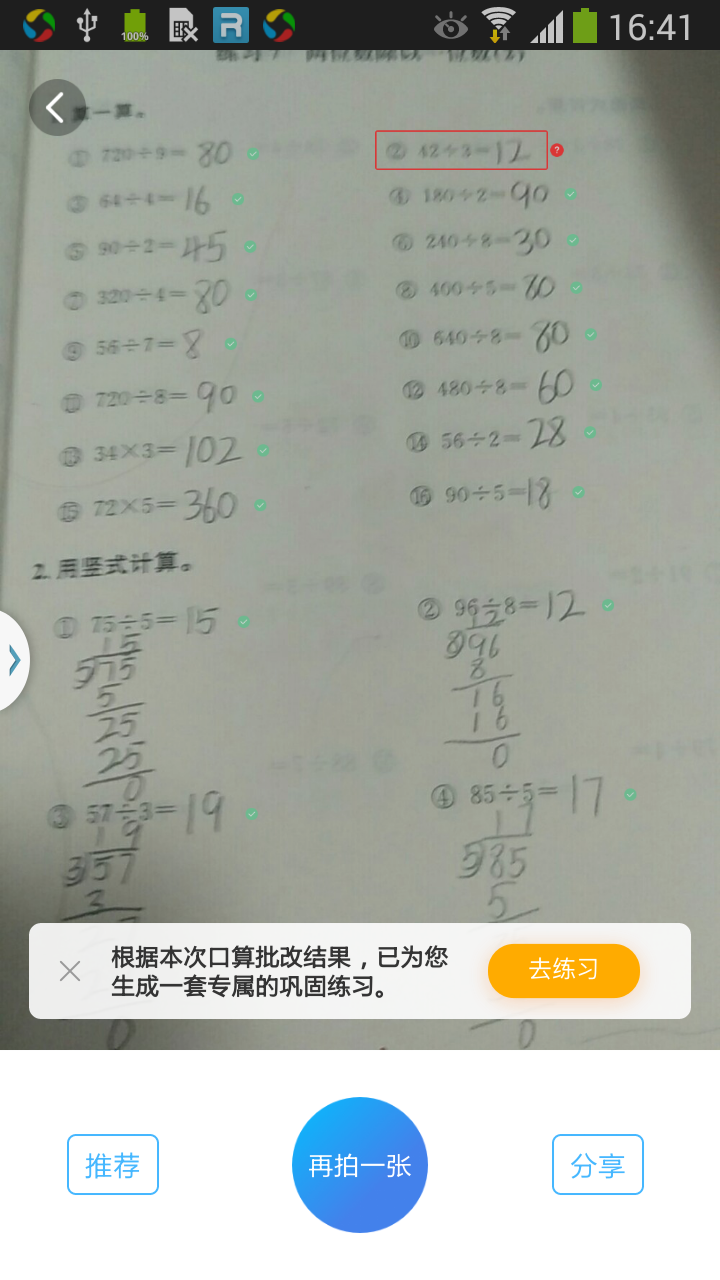 100%
16:41
练习7 两位数除以一位数(2)
算一算。
① 720÷9=80
② 42÷3=12
?
③ 64÷4=16
④ 180÷2=90
⑤ 90÷2=45
⑥ 240÷8=30
⑦ 320÷4=80
⑧ 400÷5=80
⑨ 56÷7=8
⑩ 640÷8=80
⑪ 720÷8=90
⑫ 480÷8=60
⑬ 34×3=102
⑭ 56÷2=28
⑮ 72×5=360
⑯ 90÷5=18
2.用竖式计算。
① 75÷5=15
15
5)75
5
25
25
0
② 96÷8=12
12
8)96
8
16
16
0
③ 57÷3=19
19
3)57
3
0
④ 85÷5=17
17
5)85
5
0
根据本次口算批改结果，已为您
生成一套专属的巩固练习。
去练习
推荐
再拍一张
分享